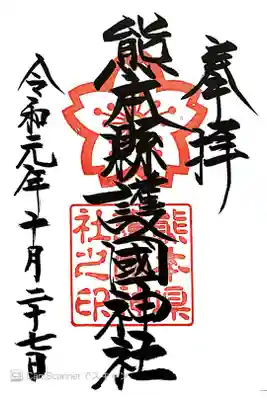 奉拝
熊本縣護國神社
令和元年十月二十七日
熊本県
社之印
CamScanner でスキャン